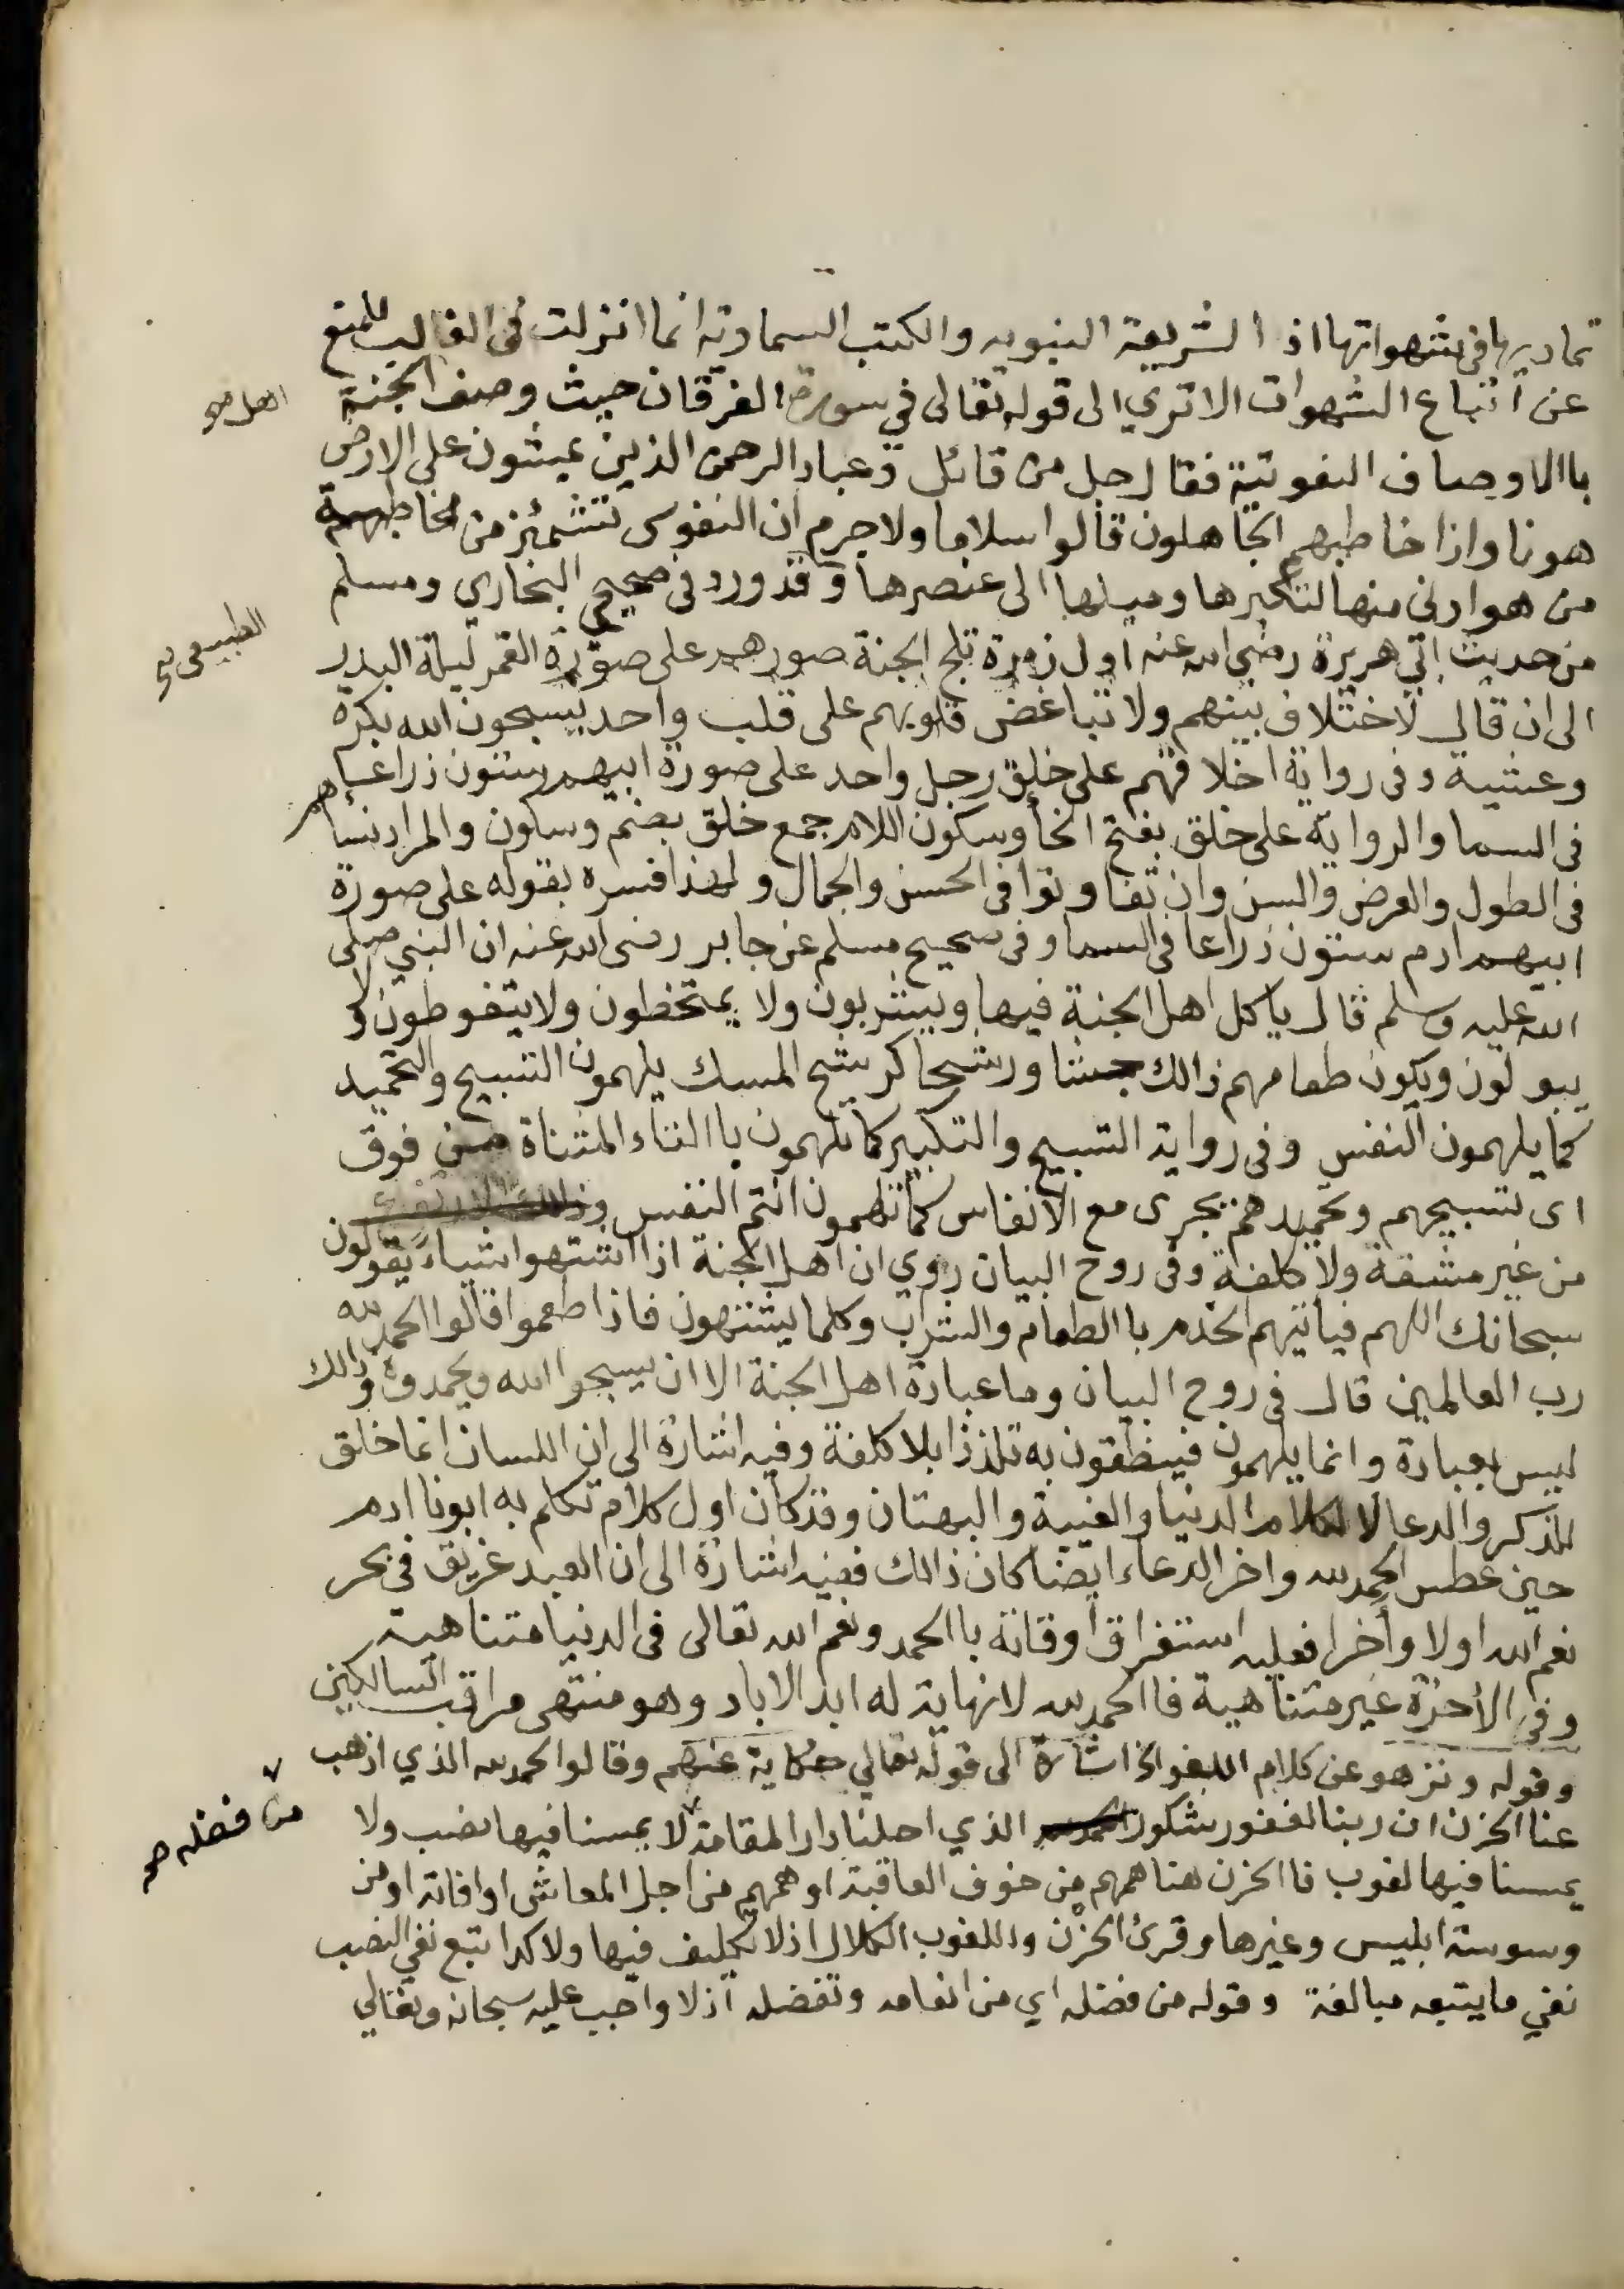 تماديها في شهواتها اذ الشريعة النبويه والكتب السماويه انما انزلت في الغالب للمنع
عن اتباع الشهوات الا تري الى قوله تعالى في سورة الفرقان حيث وصف الجنة
اهل صح
باالاوصاف النعوتية فقال جل من قائل وعباد الرحمن الذين يمشون على الارض
هونا واذا خاطبهم الجاهلون قالوا سلاما ولا جرم ان النفوس تشمئز من مخاطبة
من هو ادنى منها لتكبرها وميلها الى عنصرها وقد ورد في صحيحي البخاري ومسلم
الطبيعي صح
من حديث ابي هريرة رضي الله عنه اول زمرة تلج الجنة صورهم على صورة القمر ليلة البدر
الى ان قال لا ختلاف بينهم ولا تباغض قلوبهم على قلب واحد يسبحون الله بكرة
وعشية وفى رواية اخلاقهم على خلق رجل واحد على صورة ابيهم ستون ذراعا
فى السما والرواية على خلق بفتح الخأ وسكون اللام جمع خلق بضم وسكون والمراد نساهم
فى الطول والعرض والسن وان تفاوتوا فى الحسن والجمال ولهذا فسره بقوله على صورة
ابيهم ادم ستون ذراعا فى السما وفى صحيح مسلم عن جابر رضى الله عنه ان النبي صلى
الله عليه وسلم قال ياكل اهل الجنة فيها ويشربون ولا يمتخطون ولا يتغوطون ولا
يبولون ويكون طعامهم ذالك جشا ورشحا كرشح المسك يلهمون التسبيح والتحميد
كما يلهمون النفس وفى رواية التسبيح والتكبير كما تلهمون باالتاء المثناة من فوق
اى تسبيحهم وتحميدهم يجرى مع الانفاس كما تلهمون انتم النفس
من غير مشقة ولا كلفة وفى روح البيان روي ان اهل الجنة اذا اشتهوا شياء يقولون
سبحانك اللهم فياتيهم الخدم باالطعام والشراب وكلما يشتهون فاذا طعموا قالوا الحمد لله
رب العالمين قال فى روح البيان وما عبادة اهل الجنة الا ان يسبحوا الله ويحمدوه وذالك
ليس بعبادة وانما يلهمون فينطقون به تلذذا بلا كلفة وفيه اشارة الى ان اللسان انما خلق
للذكر والدعا لا لكلام الدنيا والغيبة والبهتان وقد كان اول كلام تكلم به ابونا ادم
حين عطس الحمد لله واخر الدعاء ايضا كان ذالك ففيه اشارة الى ان العبد غريق فى بحر
نعم الله اولا وأخرا فعليه استغراق اوقاته باالحمد ونعم الله تعالى فى الدنيا متناهية
وفى الأخرة غير متناهية فاالحمد لله لا نهاية له ابد الاباد وهو منتهى مراقب السالكين
وقوله ونزهو عن كلام اللغو الخ اشارة الى قوله تعالي حكاية عنهم وقالوا الحمد لله الذي اذهب
عنا الحزن ان ربنا لغفور شكور الذي احلنا دار المقامة لا يمسنا فيها نصب ولا
من فضله صح
يمسنا فيها لغوب فاالحزن هنا همهم من خوف العاقبة او همهم من اجل المعاش او افاته او من
وسوسة ابليس وغيرها وقرئ الحزن واللغوب الكلال اذ لا تكليف فيها ولا كد اتبع نفي النصب
نفي ما يتبعه مبالغة وقوله من فضله اي من انعامه وتفضله اذ لا واجب عليه سبحانه وتعالي